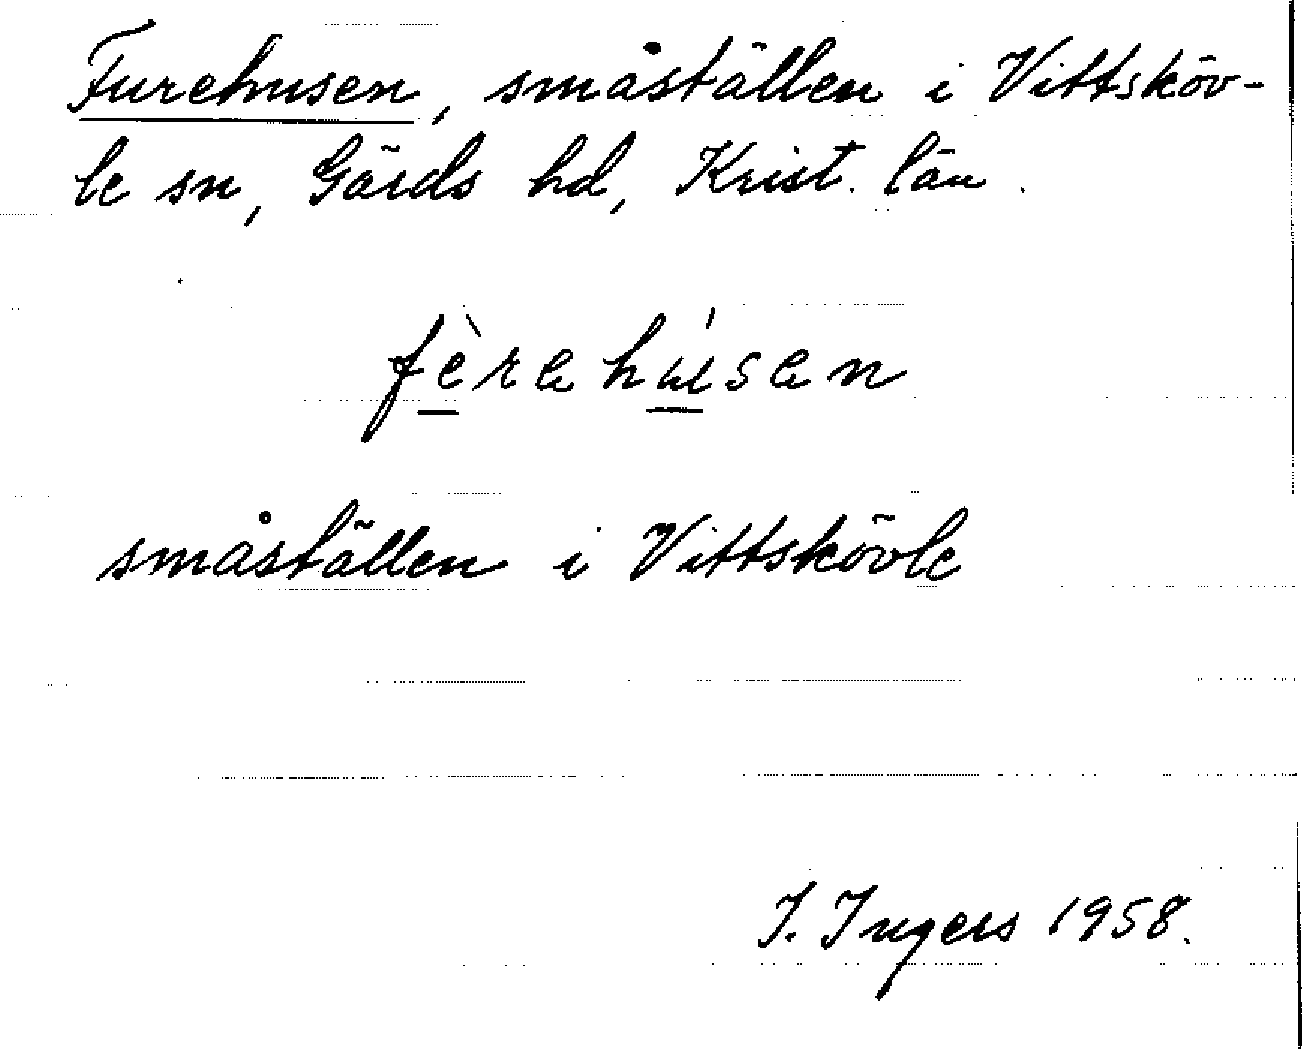 Furehusen, småställen i Vittsköv-
le sn, Gärds hd, Krist. län.
fèrehúsen
småställen i Vittskövle
I. Ingers 1958.